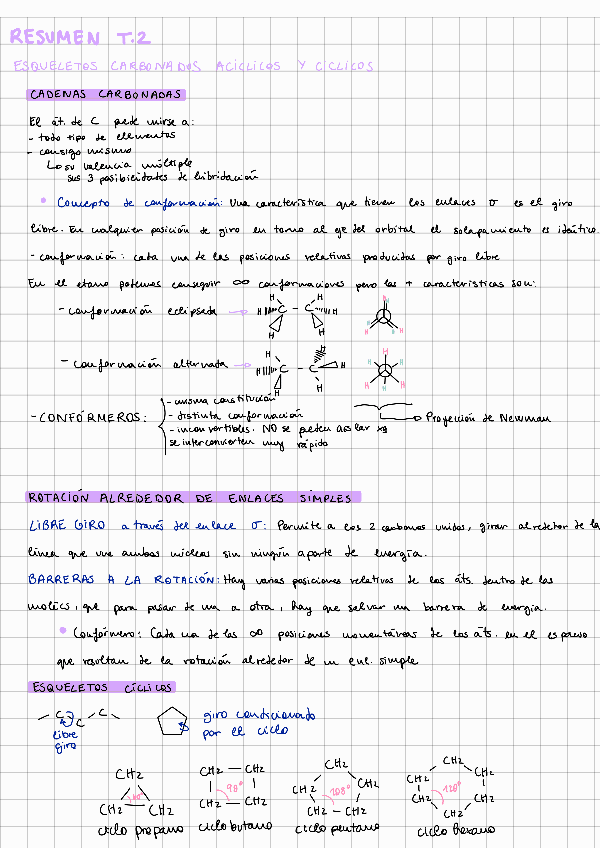 RESUMEN T.2
ESQUELETOS CARBONADOS ACÍCLICOS Y CÍCLICOS
CADENAS CARBONADAS
El át. de C puede unirse a:
- todo tipo de elementos
- consigo mismo
↳ su valencia múltiple
sus 3 posibilidades de hibridación
• Concepto de conformación: Una característica que tienen los enlaces σ es el giro
libre. En cualquier posición de giro en torno al eje del orbital el solapamiento es idéntico.
- conformación: cada una de las posiciones relativas producidas por giro libre
En el etano podemos conseguir ∞ conformaciones pero las + características son:
- conformación eclipsada →
H H H C - C H H H
H H H H H H
- conformación alternada →
H H H C - C H H H
H H H H H H
- CONFÓRMEROS:
- misma constitución
- distinta conformación
- inconvertibles. NO se pueden aislar xq
se interconvierten muy rápido
→ Proyección de Newman
ROTACIÓN ALREDEDOR DE ENLACES SIMPLES
LIBRE GIRO a través del enlace σ: Permite a los 2 carbonos unidos, girar alrededor de la
línea que une ambos núcleos sin ningún aporte de energía.
BARRERAS A LA ROTACIÓN: Hay varias posiciones relativas de los áts. dentro de las
molécs, que para pasar de una a otra, hay que salvar una barrera de energía.
• Confórmero: Cada una de las ∞ posiciones momentáneas de los áts. en el espacio
que resultan de la rotación alrededor de un enl. simple
ESQUELETOS CÍCLICOS
C C C
libre
giro
giro condicionado
por el ciclo
CH2 CH2 CH2 60°
CH2 - CH2 CH2 - CH2 90°
CH2 CH2 CH2 CH2 - CH2 108°
CH2 CH2 CH2 CH2 CH2 CH2 120°
ciclo propano ciclo butano ciclo pentano ciclo hexano